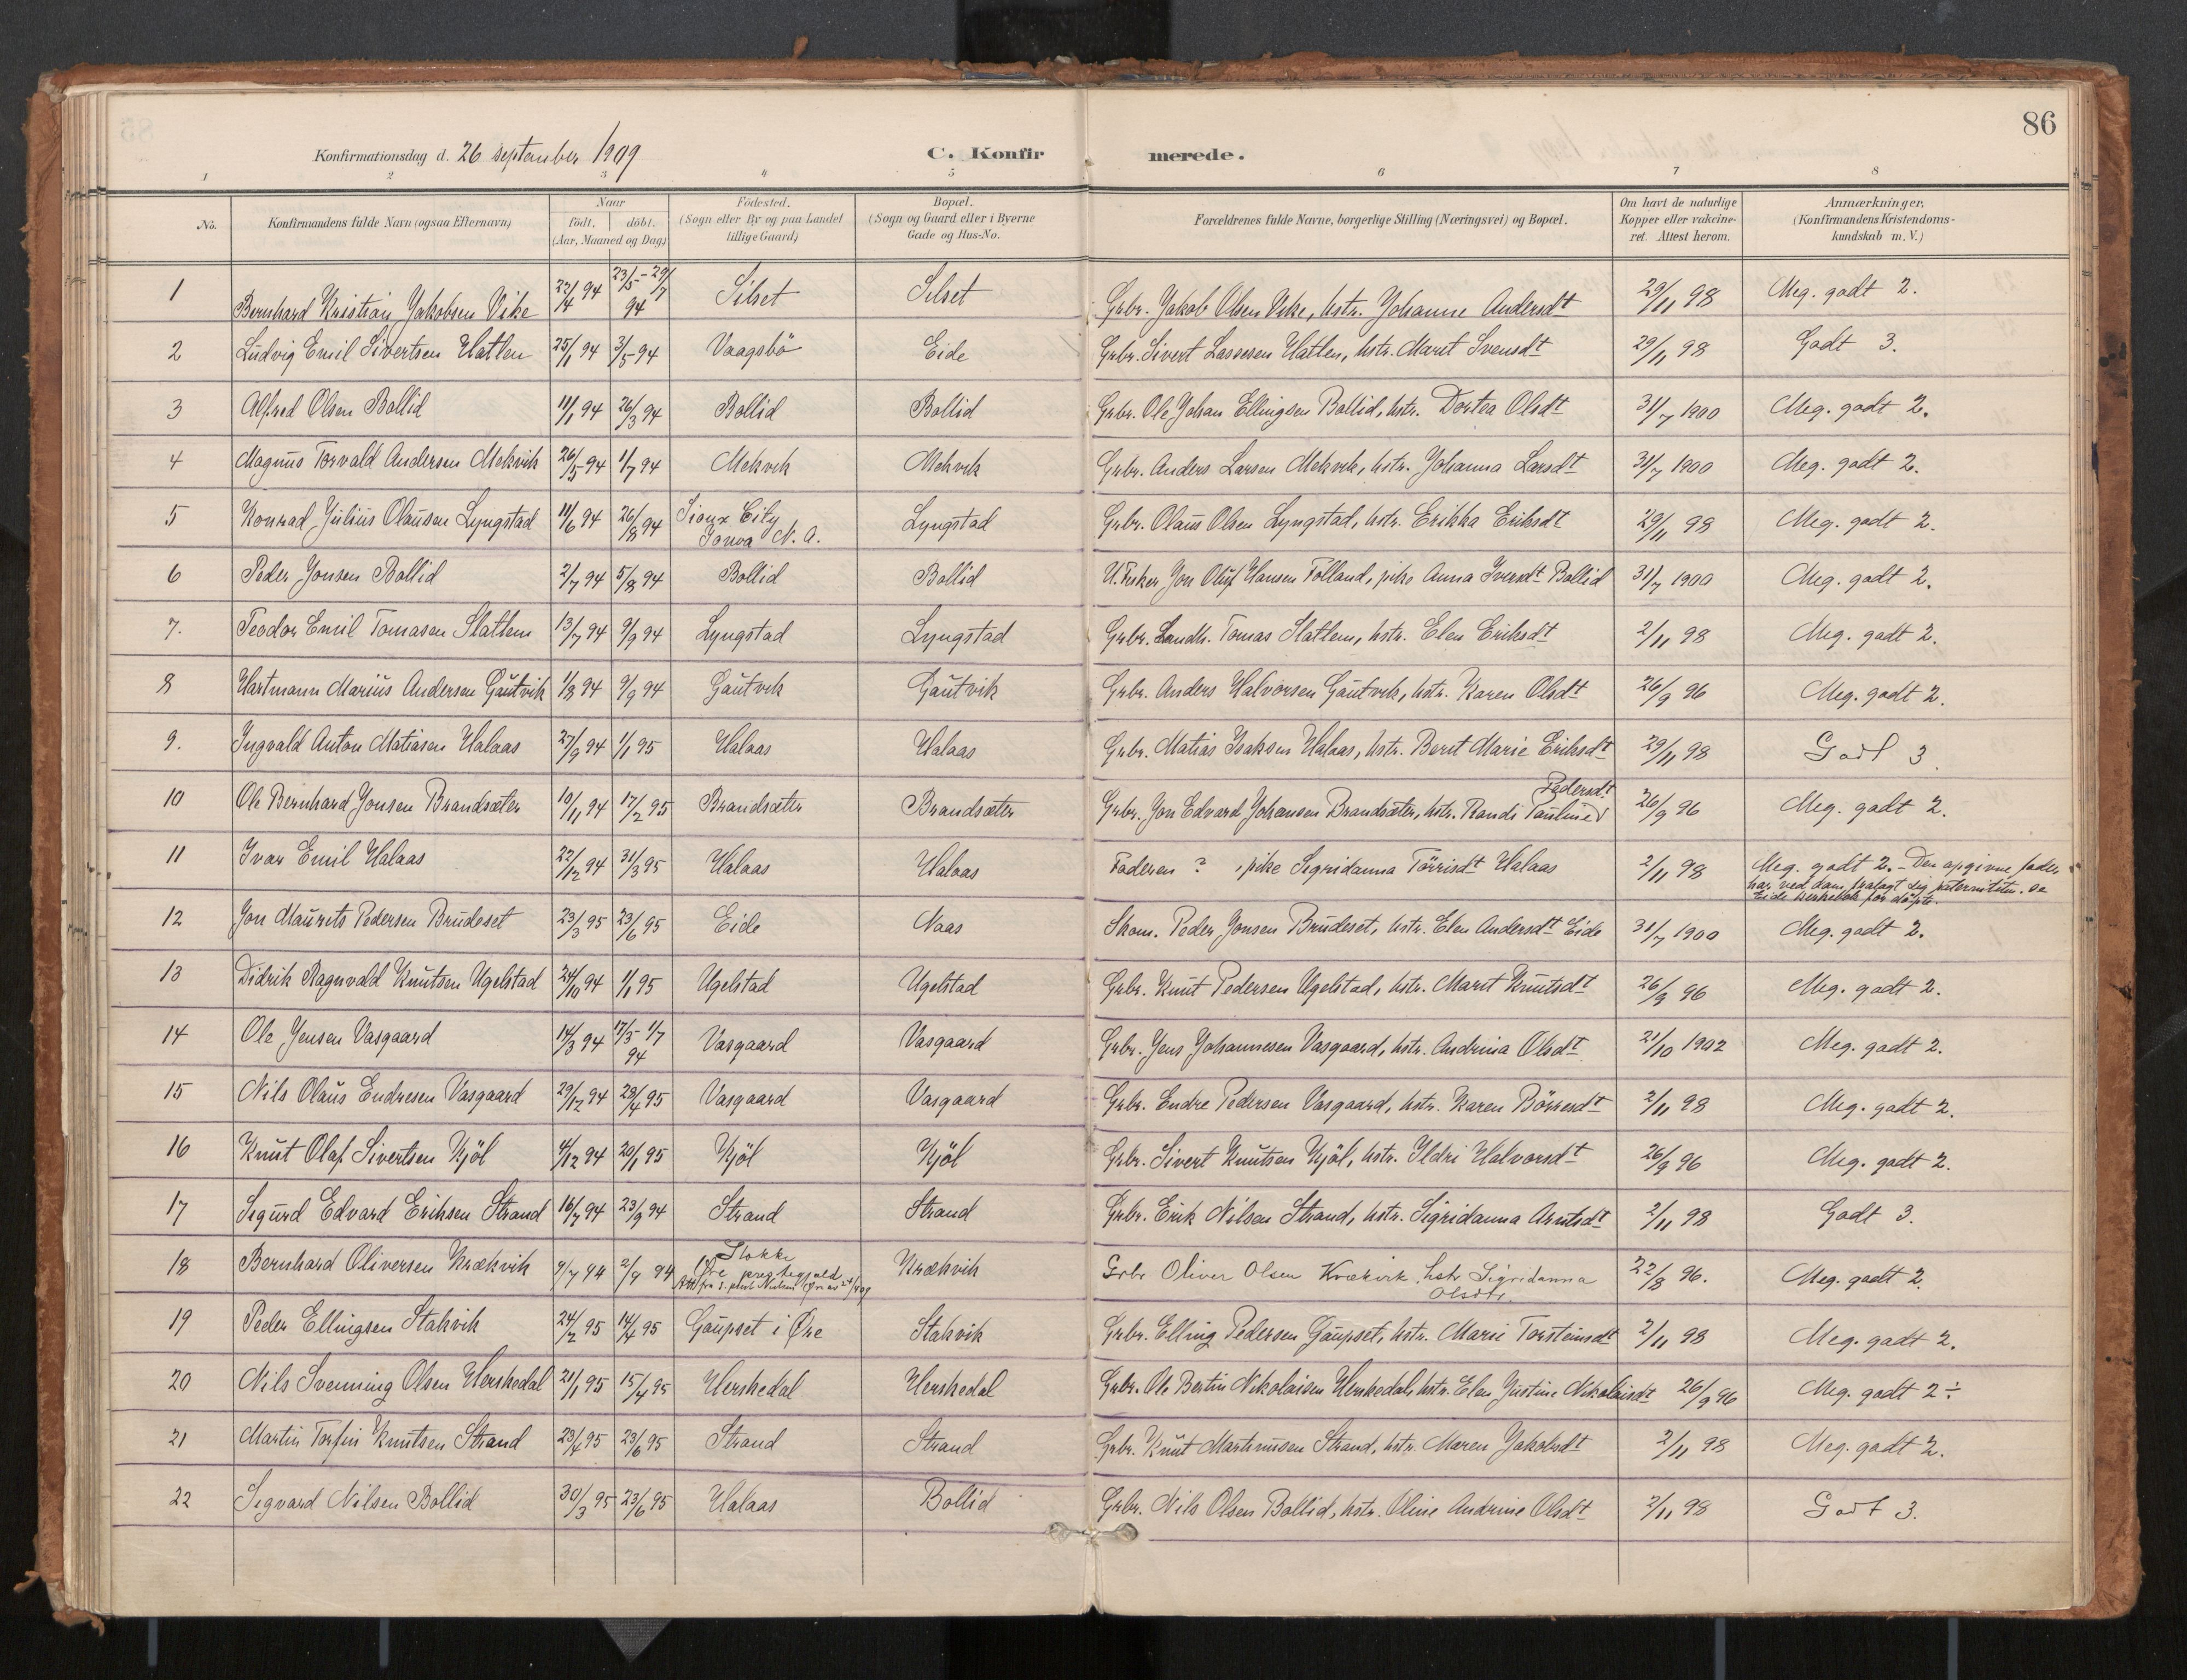 86
Konfirmationsdag d. 26 september 1909 C. Konfirmerede.
1 2 3 4 5 6 7 8
No. Konfirmandens fulde Navn (ogsaa Efternavn) Naar født, döbt. (Aar, Maaned og Dag) Födested. (Sogn eller By og paa Landet tillige Gaard) Bopæl. (Sogn og Gaard eller i Byerne Gade og Hus-No. Forældrenes fulde Navne, borgerlige Stilling (Næringsvei) og Bopæl. Om havt de naturlige Kopper eller vakcineret. Attest herom. Anmærkninger, (Konfirmandens Kristendomskundskab m. V.)
1 Bernhard Kristian Jakobsen Vike 22/4 94 23/5 - 29/7 94 Silset Silset Grbr. Jakob Olsen Vike, hstr. Johanne Andersdt 29/11 98 Meg. godt 2.
2 Ludvig Emil Sivertsen Hatlen 25/1 94 3/5 94 Vaagsbö Eide Grbr. Sivert Lassesen Hatlen, hstr. Marit Svensdt 29/11 98 Godt 3.
3 Alfred Olsen Bollid 11/1 94 26/3 94 Bollid Bollid Grbr. Ole Johan Ellingsen Bollid, hstr. Dortea Olsdt 31/7 1900 Meg. godt 2.
4 Magnus Torvald Andersen Mekvik 26/5 94 1/7 94 Mekvik Mekvik Grbr. Anders Larsen Mekvik, hstr. Johanna Larsdt 31/7 1900 Meg. godt 2.
5 Konrad Julius Olausen Lyngstad 11/6 94 26/8 94 Sioux City Iowa N. A. Lyngstad Grbr. Olaus Olsen Lyngstad, hstr. Erikka Eriksdt 29/11 98 Meg. godt 2.
6 Peder Jonsen Bollid 2/7 94 5/8 94 Bollid Bollid U. Fisker Jon Oluf Hansen Tolland, pike Anna Iversdt Bollid 31/7 1900 Meg. godt 2.
7. Teodor Emil Tomasen Slatlem 13/7 94 9/9 94 Lyngstad Lyngstad Grbr. Landh. Tomas Slatlem, hstr. Elen Eriksdt 2/11 98 Meg. godt 2.
8 Hartmann Marius Andersen Gautvik 1/8 94 9/9 94 Gautvik Gautvik Grbr. Anders Halvorsen Gautvik, hstr. Karen Olsdt 26/9 96 Meg. godt 2.
9. Ingvald Anton Matiasen Halaas 27/9 94 1/1 95 Halaas Halaas Grbr. Matias Isaksen Halaas, hstr. Berit Marie Eriksdt 29/11 98 Godt 3.
10 Ole Bernhard Jonsen Brandsæter 10/11 94 17/2 95 Brandsæter Brandsæter Grbr. Jon Edvard Johansen Brandsæter, hstr. Randi Pauline Pedersdt 26/9 96 Meg. godt 2.
11 Ivar Emil Halaas 22/12 94 31/3 95 Halaas Halaas Faderen ? , pike Sigridanna Törrisdt Halaas 2/11 98 Meg. godt 2. - Den opgivne fader
har ved dom fralagt sig paterniteten. se
Eide kirkebok for döpte.
12 Jon Maurits Pedersen Brudeset 23/3 95 23/6 95 Eide Naas Skom. Peder Jonsen Brudeset, hstr. Elen Andersdt Eide 31/7 1900 Meg. godt 2.
13 Didrik Ragnvald Knutsen Ugelstad 24/10 94 1/1 95 Ugelstad Ugelstad Grbr. Knut Pedersen Ugelstad, hstr. Marit Knutsdt 26/9 96 Meg. godt 2.
14 Ole Jensen Vasgaard 14/3 94 17/3 - 1/7 94 Vasgaard Vasgaard Grbr. Jens Johannesen Vasgaard, hstr. Andrina Olsdt 21/10 1902 Meg. godt 2.
15 Nils Olaus Endresen Vasgaard 29/12 94 28/4 95 Vasgaard Vasgaard Grbr. Endre Pedersen Vasgaard, hstr. Karen Börresdt 2/11 98 Meg. godt 2.
16 Knut Olaf Sivertsen Kjöl 4/12 94 20/1 95 Kjöl Kjöl Grbr. Sivert Knutsen Kjöl, hstr. Ildri Halvorsdt 26/9 96 Meg. godt 2.
17 Sigurd Edvard Eriksen Strand 16/7 94 23/9 94 Strand Strand Grbr. Erik Nilsen Strand, hstr. Sigridanna Arntsdt 2/11 98 Godt 3.
18 Bernhard Oliversen Krækvik 9/7 94 2/9 94 Stokke Øre prestegjeld Krækvik Grbr Oliver Olsen Krækvik, hstr Sigridanna Olsdt. 22/8 96. Meg. godt 2.
19 Peder Ellingsen Stakvik 24/2 95 14/4 95 Gaupset i Øre Stakvik Grbr. Elling Pedersen Gaupset, hstr. Marie Torsteinsdt 2/11 98 Meg. godt 2.
20 Nils Svenning Olsen Herskedal 21/1 95 15/4 95 Herskedal Herskedal Grbr. Ole Bertin Nikolaisen Herskedal, hstr. Elen Justine Nikolaisdt 26/9 96 Meg. godt 2 ÷
21 Martin Torfin Knutsen Strand 23/4 95 23/6 95 Strand Strand Grbr. Knut Martinusen Strand, hstr. Maren Jakobsdt 2/11 98 Meg. godt 2.
22 Sigvard Nilsen Bollid 30/3 95 23/6 95 Halaas Bollid Grbr. Nils Olsen Bollid, hstr. Oline Andrine Olsdt 2/11 98 Godt 3.